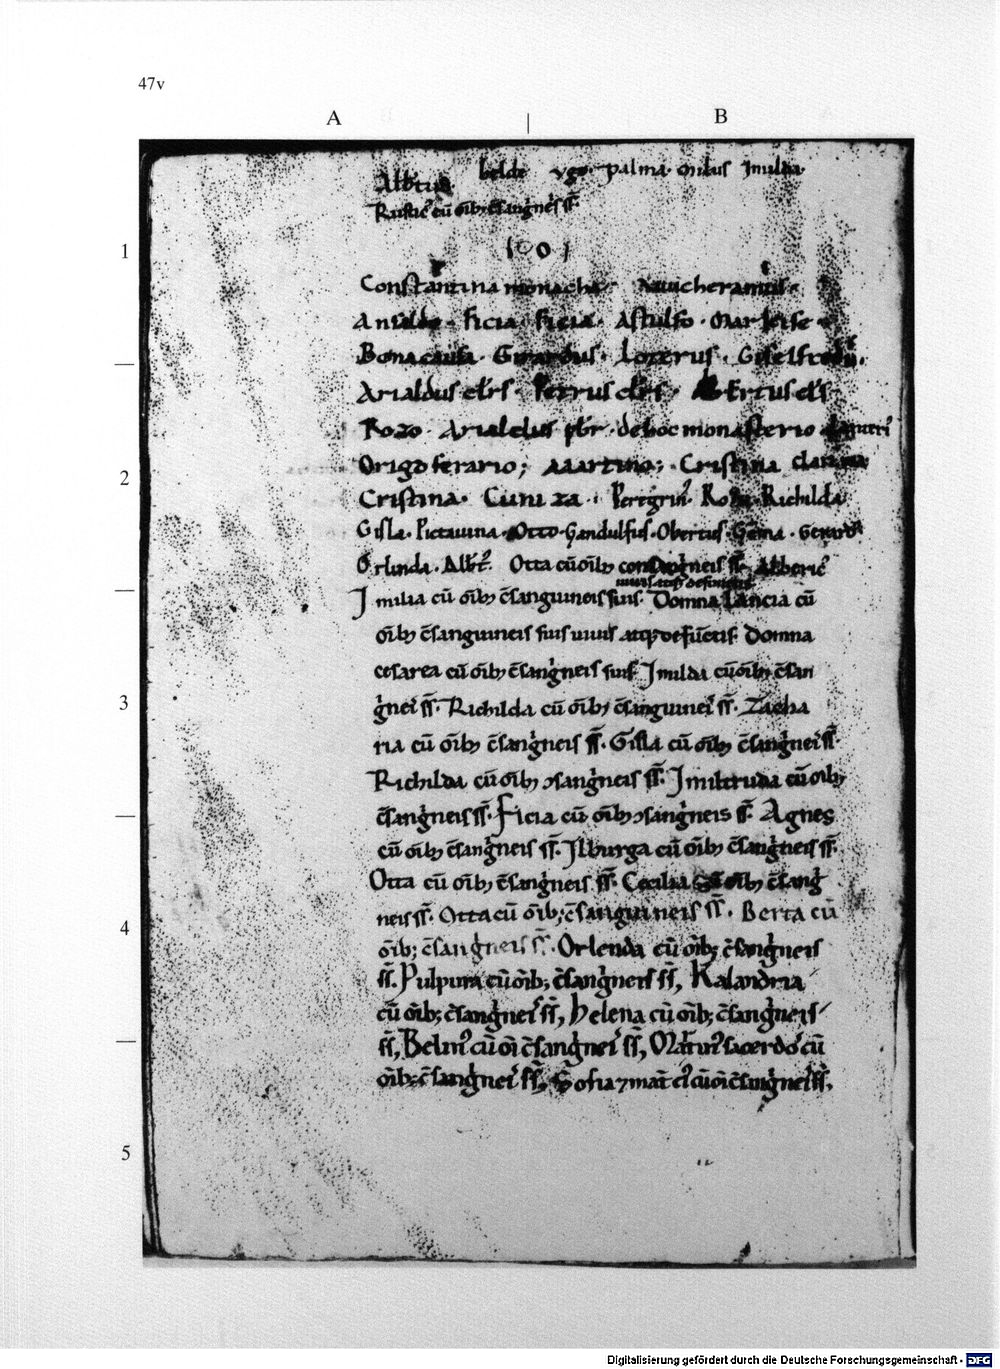 47v
A B
belde ugo palma onibus Imilda
Albtus
Rustic᾽ cū oīb; c̄sangͥneis ss̄
1
Constantina monacha
Ficia · Ficia · Astulfo ·
Bona causa · Girardus · Loterus · Giselfredus
Arialdus clrs · Petrus clrs · Albertus clrs
Rozo · Arialdus pbr · de hoc monasterio
2
Origo ferario; Martino; Cristina
Cristina · Cuniza · Peregrin᾽ Roza Richilda
Gisla · Pictauina · Otto · Gandulfus · Obertus · Gēma · Gerard᾽
Orlinda · Albt᾽ Otta cū oīb; consangͥneis ss̄ Alberic᾽
uiuis atq; defunctis
Imilia cū oīb; c̄sanguineis suis · Domna Lancia cū
oīb; c̄sanguineis suis uiuis atq; defūctis · Domna
cesarea cū oīb; c̄sangͥneis suis · Imilda cū oīb; c̄san
3
gͥneis ss̄ · Richilda cū oīb; c̄sanguineis ss̄ · Zacha
ria cū oīb; c̄sangͥneis ss̄ · Gisla cū oīb; c̄sangͥneis ss̄ ·
Richilda cū oīb; ɔsangͥneis ss̄ · Imiltruda cū oīb;
c̄sangͥneis ss̄ · Ficia cū oīb; ɔsangͥneis ss̄ · Agnes
cū oīb; c̄sangͥneis ss̄ · Ilburga cū oīb; c̄sangͥneis ss̄ ·
Otta cū oīb; c̄sangͥneis ss̄ · Cecilia cū oīb; c̄sangͥ
neis ss̄ · Otta cū oīb; c̄sanguineis ss̄ · Berta cū
4
oīb; c̄sangͥneis ss̄ · Orlenda cū oīb; c̄sangͥneis
ss̄ · Pulpura cū oīb; c̄sangͥneis ss̄, Kalandria
cū oīb; c̄sangͥneis ss̄, Helena cū oīb; c̄sangͥneis
ss̄, Belin᾽ cū oī c̄sangͥneis ss̄, Martin᾽ sacerdos cū
oīb; c̄sangͥneis ss̄, Sofia ⁊ mat̄ ei᾽ cū oī c̄sangͥneis ss̄,
5
Digitalisierung gefördert durch die Deutsche Forschungsgemeinschaft - DFG